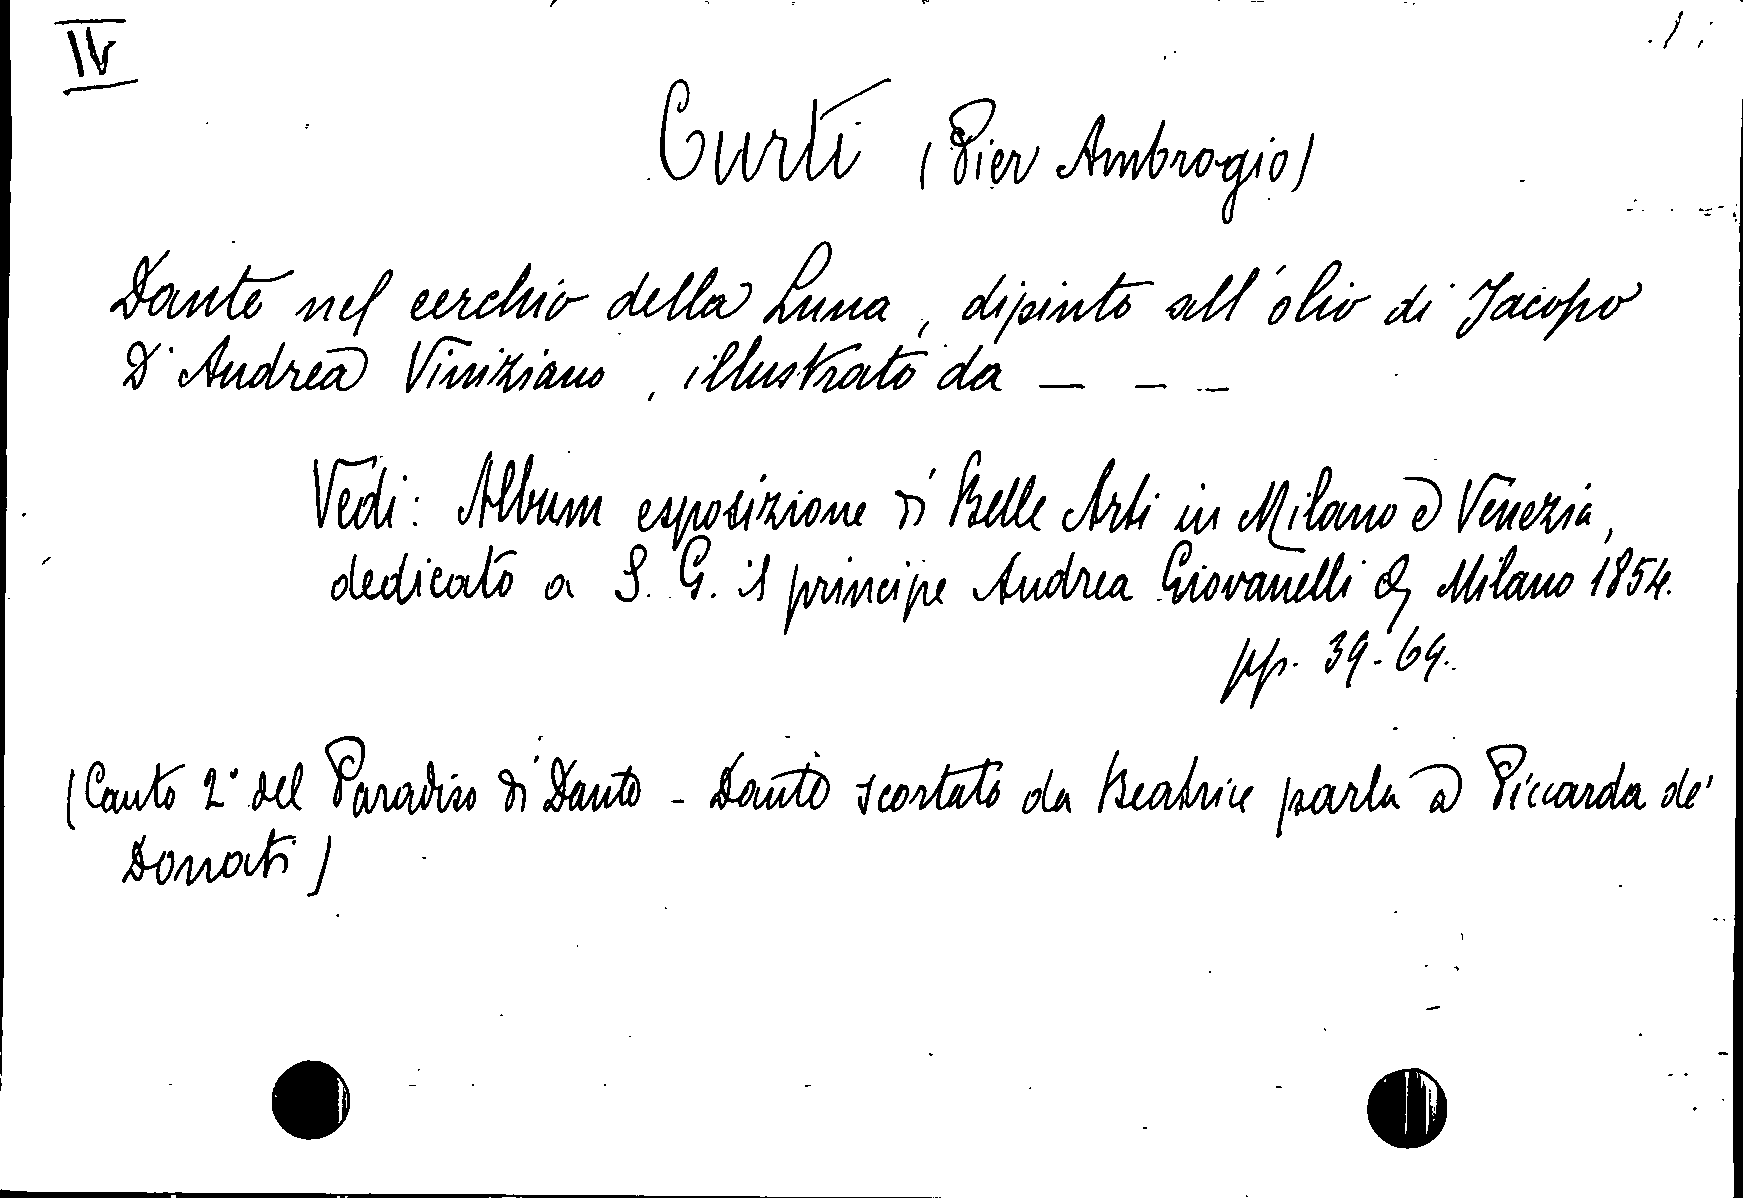 IV
Curti (Pier Ambrogio)
Dante nel cerchio della Luna, dipinto all'olio di Jacopo
D'Andrea Viniziano, illustrato da _ _ _
Vedi: Album esposizione di Belle Arti in Milano e Venezia,
dedicato a S. G. il principe Andrea Giovanelli Milano 1854.
pp. 39-69.
(Canto 2° del Paradiso di Dante - Dante scortato da Beatrice parla a Piccarda de'
Donati)